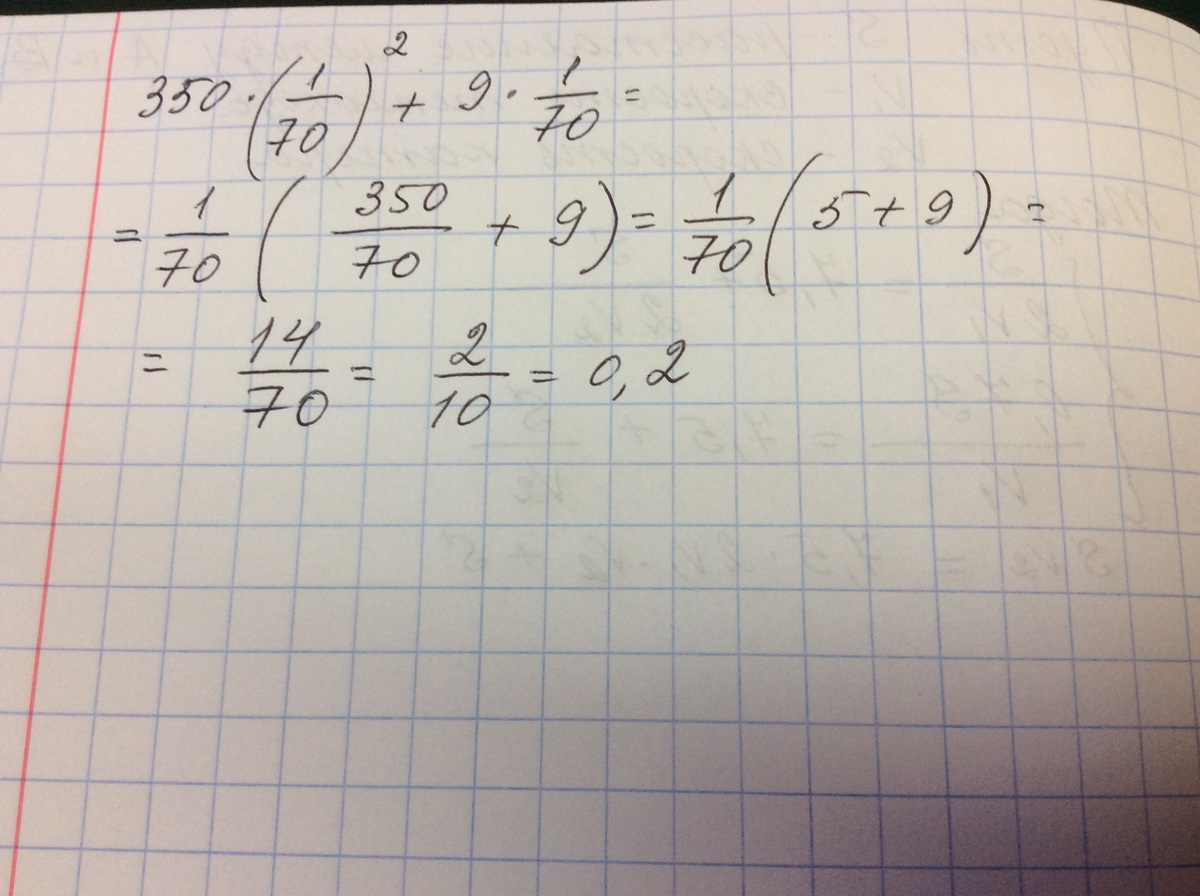 350 · (1/70)² + 9 · 1/70 =
= 1/70 ( 350/70 + 9) = 1/70 ( 5 + 9) =
= 14/70 = 2/10 = 0,2